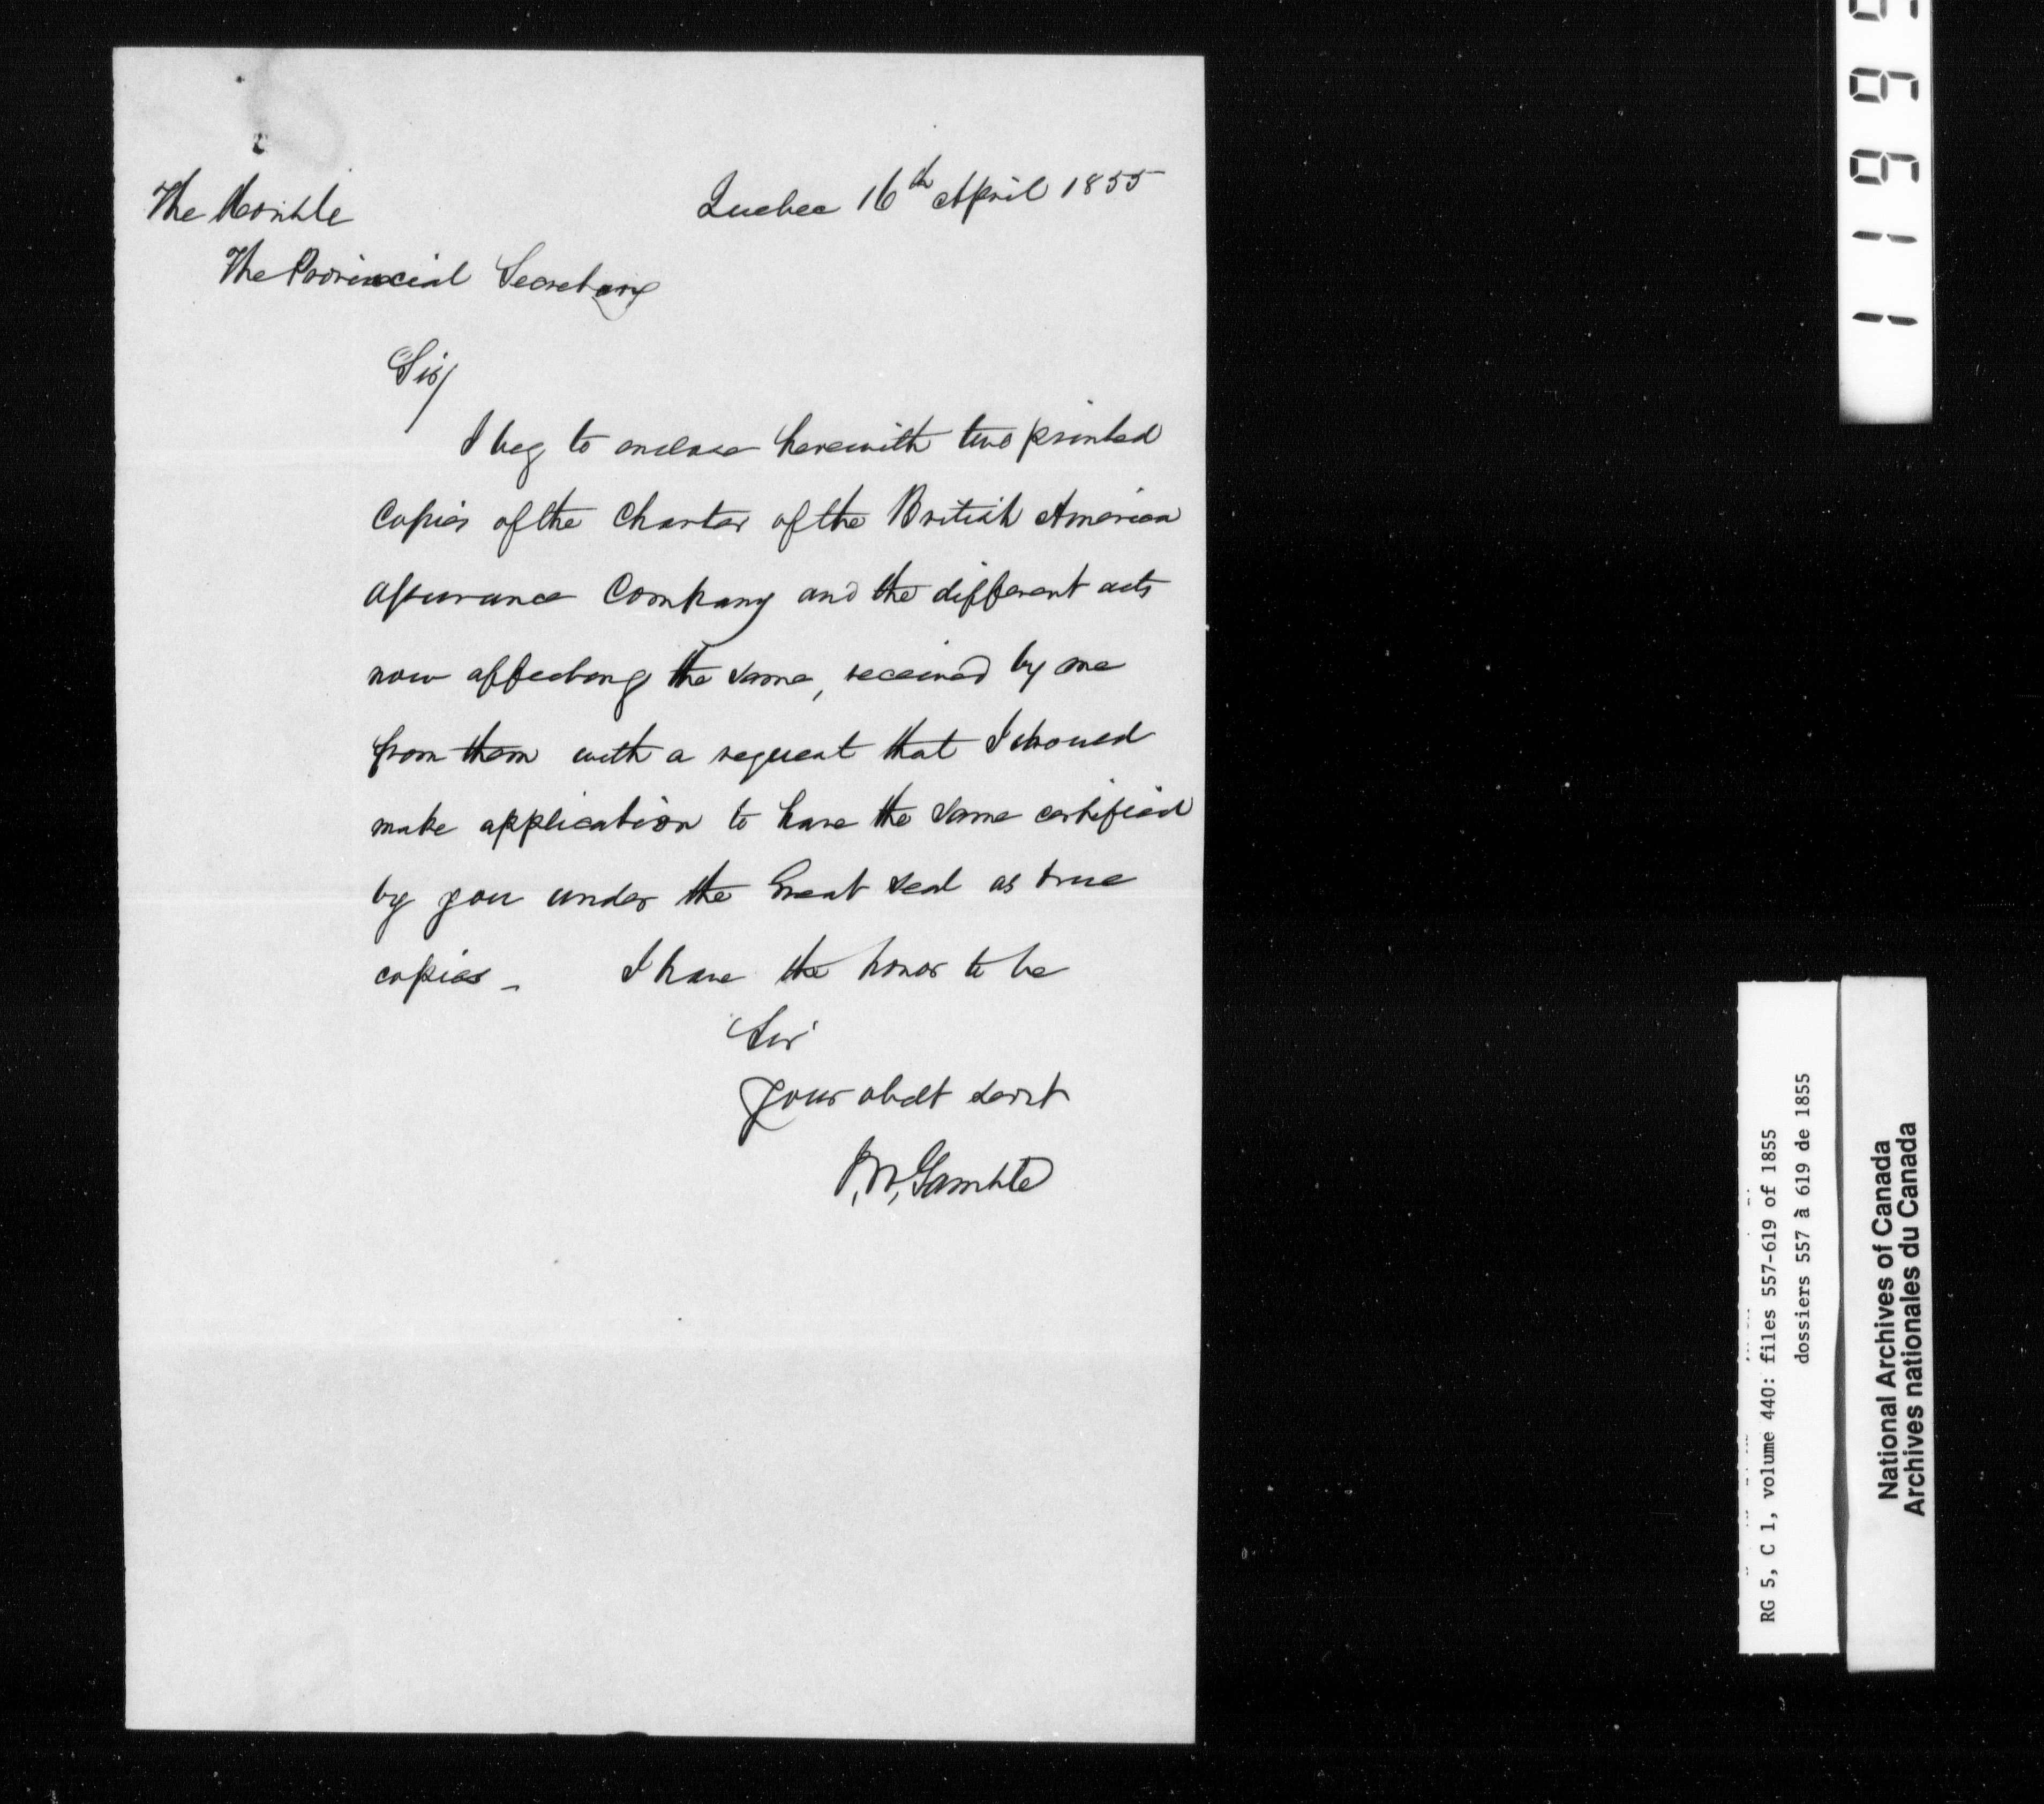 The Honble
Quebec 16th April 1855
The Provincial Secretary
Sir/
I beg to enclose herewith two printed
Copies of the Charter of the British America
Assurance Company and the different acts
now affecting the same, received by me
from them with a request that I should
make application to have the same certified
by you under the Great Seal as true
copies _ I have the honor to be
Sir
Your obdt servt
J.W. Gamble
RG 5, C 1, volume 440: files 557-619 of 1855
dossiers 557 à 619 de 1855
National Archives of Canada
Archives nationales du Canada